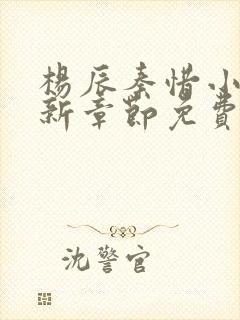 楊辰秦惜小
新章節免費
沈警官